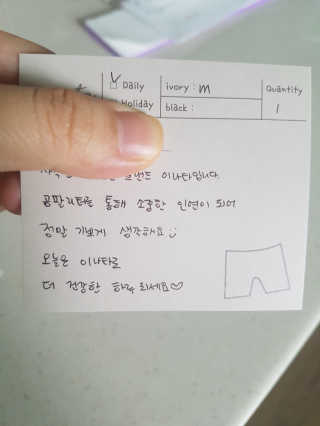 Daily ivory : m Quantity
Holiday black : 1
이나타입니다.
공팔리터를 통해 소중한 인연이 되어
정말 기쁘게 생각해요
오늘은 이나타로
더 건강한 하루 되세요♡